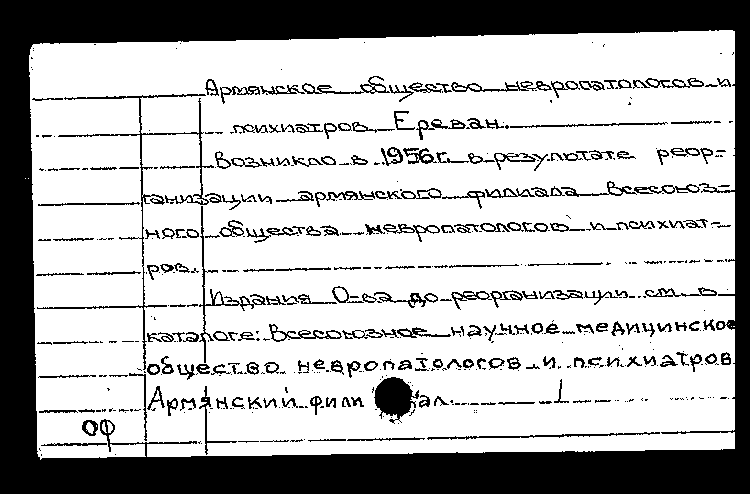 Армянское общество невропатологов и
психиатров. Ереван.
Возникло в 1956г. в результате реор-
ганизации армянского филиала Всесоюз-
ного общества невропатологов и психиат-
ров.
Издания О-ва до реорганизации см. в
каталоге: Всесоюзное научное медицинское
общество невропатологов и психиатров
Армянский филиал.
ОФ